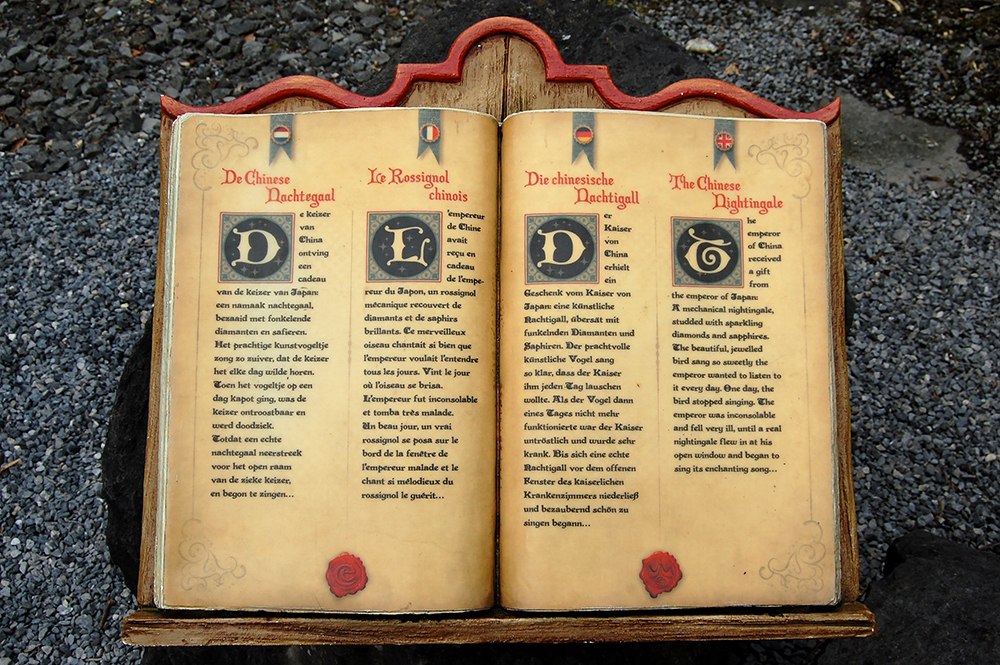 De Chinese
Nachtegaal
De keizer
van
China
ontving
een
cadeau
van de keizer van Japan:
een namaak nachtegaal,
bezaaid met fonkelende
diamanten en safieren.
Het prachtige kunstvogeltje
zong zo zuiver, dat de keizer
het elke dag wilde horen.
Toen het vogeltje op een
dag kapot ging, was de
keizer ontroostbaar en
werd doodziek.
Totdat een echte
nachtegaal neerstreek
voor het open raam
van de zieke keizer,
en begon te zingen...
Le Rossignol
chinois
L'empereur
de Chine
avait
reçu en
cadeau
de l'empe-
reur du Japon, un rossignol
mécanique recouvert de
diamants et de saphirs
brillants. Ce merveilleux
oiseau chantait si bien que
l'empereur voulait l'entendre
tous les jours. Vint le jour
où l'oiseau se brisa.
L'empereur fut inconsolable
et tomba très malade.
Un beau jour, un vrai
rossignol se posa sur le
bord de la fenêtre de
l'empereur malade et le
chant si mélodieux du
rossignol le guérit...
Die chinesische
Nachtigall
Der
Kaiser
von
China
erhielt
ein
Geschenk vom Kaiser von
Japan: eine künstliche
Nachtigall, übersät mit
funkelnden Diamanten und
Saphiren. Der prachtvolle
künstliche Vogel sang
so klar, dass der Kaiser
ihm jeden Tag lauschen
wollte. Als der Vogel dann
eines Tages nicht mehr
funktionierte war der Kaiser
untröstlich und wurde sehr
krank. Bis sich eine echte
Nachtigall vor dem offenen
Fenster des kaiserlichen
Krankenzimmers niederließ
und bezaubernd schön zu
singen begann...
The Chinese
Nightingale
The
emperor
of China
received
a gift
from
the emperor of Japan:
A mechanical nightingale,
studded with sparkling
diamonds and sapphires.
The beautiful, jewelled
bird sang so sweetly the
emperor wanted to listen to
it every day. One day, the
bird stopped singing. The
emperor was inconsolable
and fell very ill, until a real
nightingale flew in at his
open window and began to
sing its enchanting song...